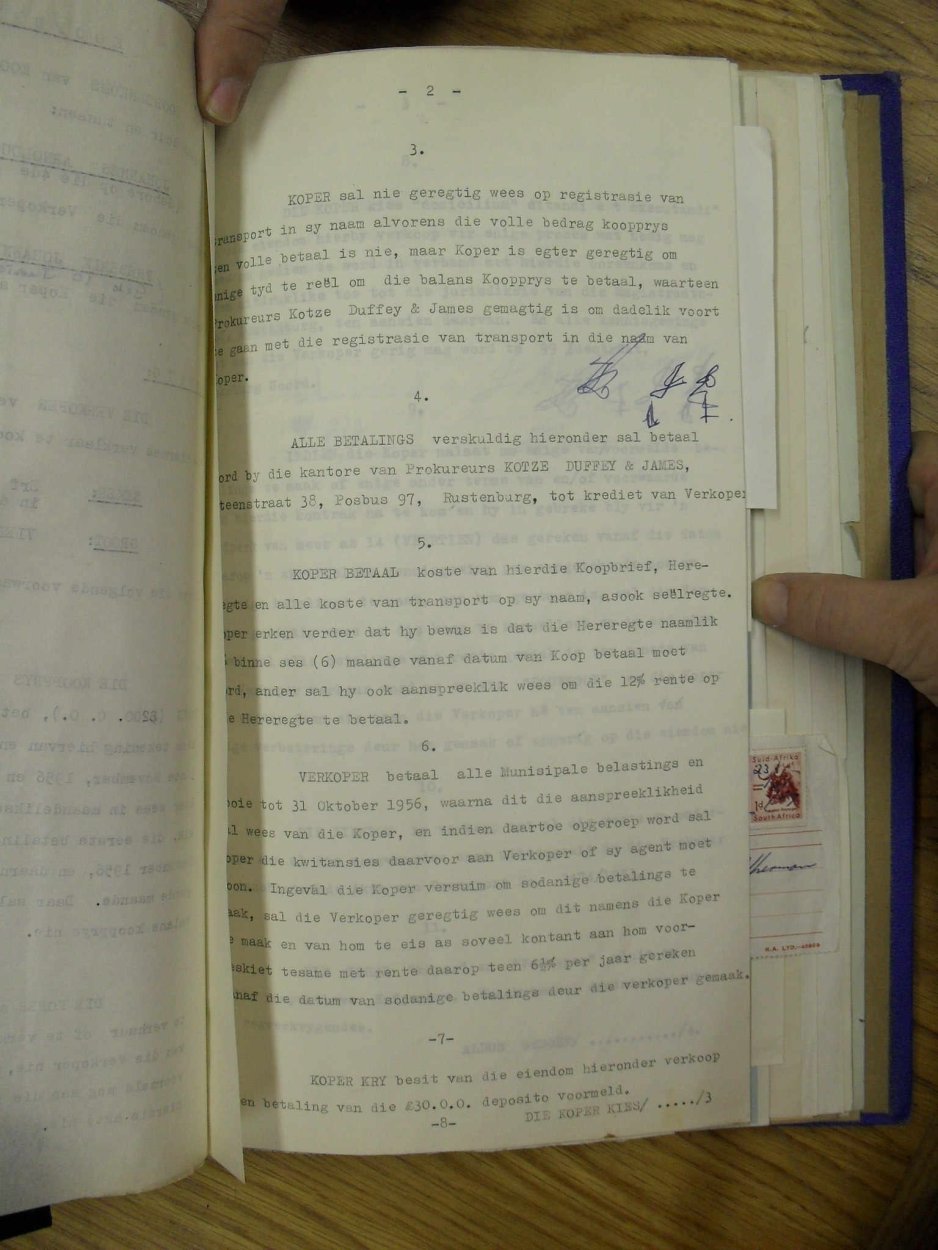 - 2 -
3.
KOPER sal nie geregtig wees op registrasie van
ransport in sy naam alvorens die volle bedrag koopprys
en volle betaal is nie, maar Koper is egter geregtig om
nige tyd te reël om die balans Koopprys te betaal, waarteen
rokureurs Kotze Duffey & James gemagtig is om dadelik voort
e gaan met die registrasie van transport in die naam van
oper.
4.
ALLE BETALINGS verskuldig hieronder sal betaal
ord by die kantore van Prokureurs KOTZE DUFFEY & JAMES,
teenstraat 38, Posbus 97, Rustenburg, tot krediet van Verkoper
5.
KOPER BETAAL koste van hierdie Koopbrief, Here-
egte en alle koste van transport op sy naam, asook seëlregte.
oper erken verder dat hy bewus is dat die Hereregte naamlik
% binne ses (6) maande vanaf datum van Koop betaal moet
rd, ander sal hy ook aanspreeklik wees om die 12% rente op
e Hereregte te betaal.
6.
VERKOPER betaal alle Munisipale belastings en
ooie tot 31 Oktober 1956, waarna dit die aanspreeklikheid
al wees van die Koper, en indien daartoe opgeroep word sal
oper die kwitansies daarvoor aan Verkoper of sy agent moet
oon. Ingeval die Koper versuim om sodanige betalings te
aak, sal die Verkoper geregtig wees om dit namens die Koper
e maak en van hom te eis as soveel kontant aan hom voor-
eskiet tesame met rente daarop teen 6½% per jaar gereken
anaf die datum van sodanige betalings deur die verkoper gemaak.
-7-
KOPER KRY besit van die eiendom hieronder verkoop
en betaling van die £30.0.0. deposito voormeld.
-8- DIE KOPER KIES/ ...../3
Suid-Afrika
23
1d
South Africa